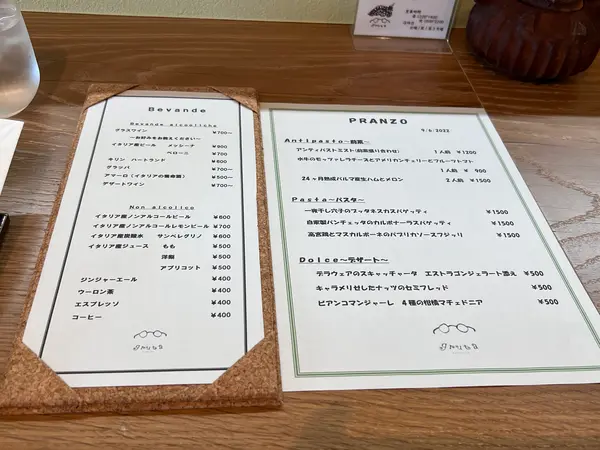 Bevande
Bevande alcoliche
グラスワイン ¥700〜
〜お好みをお教えください〜
イタリア産ビール メッシーナ ¥900
ペローニ ¥700
キリン ハートランド ¥600
グラッパ ¥700〜
アマーロ（イタリアの養命酒） ¥500〜
デザートワイン ¥700〜
Non alcolice
イタリア産ノンアルコールビール ¥600
イタリア産ノンアルコールレモンビール ¥700
イタリア産炭酸水 サンペレグリノ ¥600
イタリア産ジュース もも ¥500
洋梨 ¥500
アプリコット ¥500
ジンジャーエール ¥400
ウーロン茶 ¥400
エスプレッソ ¥400
コーヒー ¥400
PRANZO
9/6.2022
Antipasto〜前菜〜
アンティパストミスト(前菜盛り合わせ) 1人前 ¥1200
水牛のモッツァレラチーズとアメリカンチェリーとフルーツトマト
1人前 ¥ 900
24ヶ月熟成パルマ産生ハムとメロン 2人前 ¥1500
Pasta〜パスタ〜
一夜干し穴子のプッタネスカスパゲッティ ¥1500
自家製パンチェッタのカルボナーラスパゲッティ ¥1500
高宮鶏とマスカルポーネのパプリカソースフジッリ ¥1500
Dolce〜デザート〜
デラウェアのスキャッチャータ エストラゴンジェラート添え ¥500
キャラメリゼしたナッツのセミフレッド ¥500
ビアンコマンジャーレ 4種の柑橘マチェドニア ¥500